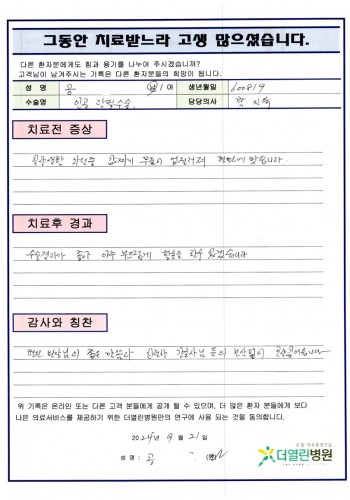 그동안 치료받느라 고생 많으셨습니다.
다른 환자분에게도 힘과 용기를 나누어 주시겠습니까?
고객님이 남겨주시는 기록은 다른 환자분들의 희망이 됩니다.
성 명 공 남 / 여 생년월일 600819
수술명 인공 관절수술. 담당의사
치료전 증상
갑자기 무릎이
치료후 경과
수술경과가 좋아 아주 부드럽게 활동을 할수 있겠습니다
감사와 칭찬
원장님의 좋은 말씀과 간호사님 들의 보살핌이
위 기록은 온라인 또는 다른 고객 분들에게 공개 될 수 있으며, 더 많은 환자 분들에게 보다
나은 의료서비스를 제공하기 위한 더열린병원만의 연구에 사용 되는 것을 동의합니다.
2024년 9 월 21 일
성 명 : 공 (인)
더열린병원